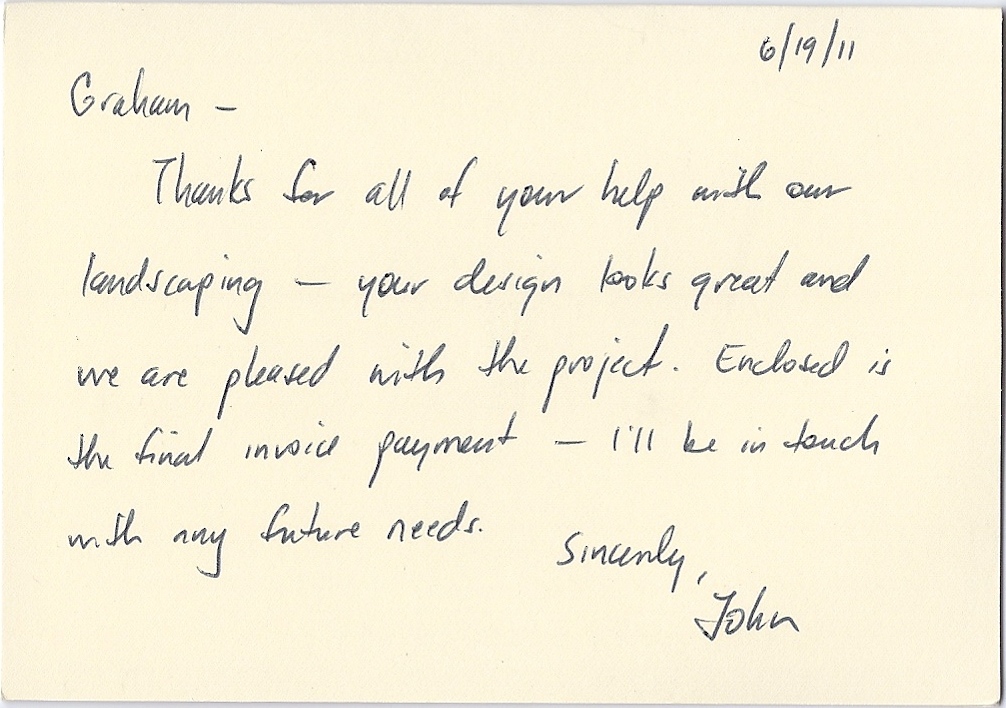 6/19/11
Graham –
Thanks for all of your help with our
landscaping – your design looks great and
we are pleased with the project. Enclosed is
the final invoice payment – I'll be in touch
with any future needs.
Sincerely,
John